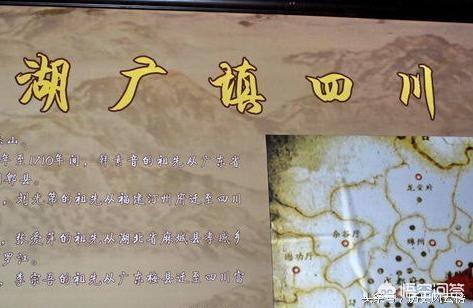 湖广填四川
乐山
年至1710年间，韩素音的祖先从广东省
郫县。
，刘光第的祖先从福建汀州府迁至四川
，张爱萍的祖先从湖北省麻城县孝感乡
罗江。
，李宗吾的祖先从广东梅县迁至四川富
龙安府
杂谷厅
绵州
懋功厅
悟空问答
头条号/历史风云榜